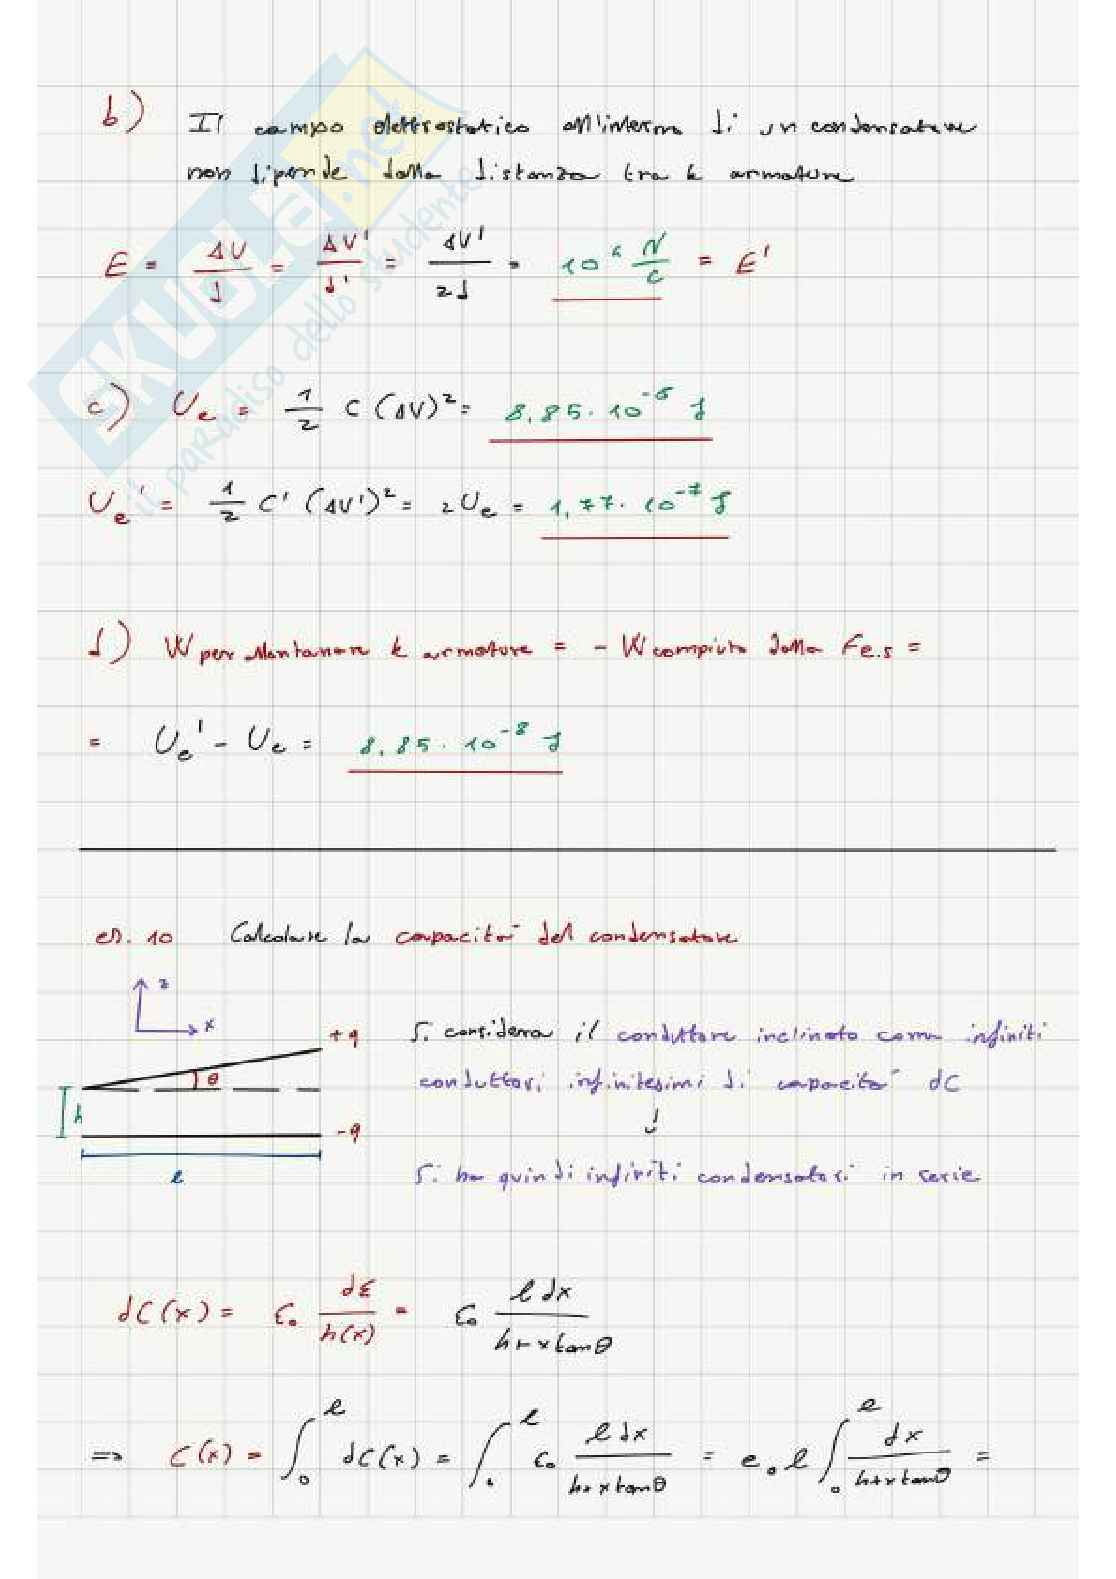 b) Il campo elettrostatico all'interno di un condensatore
non dipende dalla distanza tra le armature
E = ΔV/d = ΔV'/d' = ΔV'/2d = 10⁴ N/C = E'
c) Ue = 1/2 C (ΔV)² = 8,85 · 10⁻⁸ J
Ue' = 1/2 C' (ΔV')² = 2Ue = 1,77 · 10⁻⁷ J
d) W per allontanare le armature = - W compiuto dalla Fe.s =
= Ue' - Ue = 8,85 · 10⁻⁸ J
es. 10 Calcolare la capacità del condensatore
z
x
+q
θ
h
-q
l
Si considera il conduttore inclinato come infiniti
conduttori infinitesimi di capacità dC
↓
Si ha quindi infiniti condensatori in serie
dC(x) = ε₀ dΣ/h(x) = ε₀ l dx/(h + x tanθ)
=> C(x) = ∫₀ˡ dC(x) = ∫₀ˡ ε₀ l dx/(h + x tanθ) = ε₀ l ∫₀ˡ dx/(h + x tanθ) =
SKUOLA.net
il paradiso dello studente